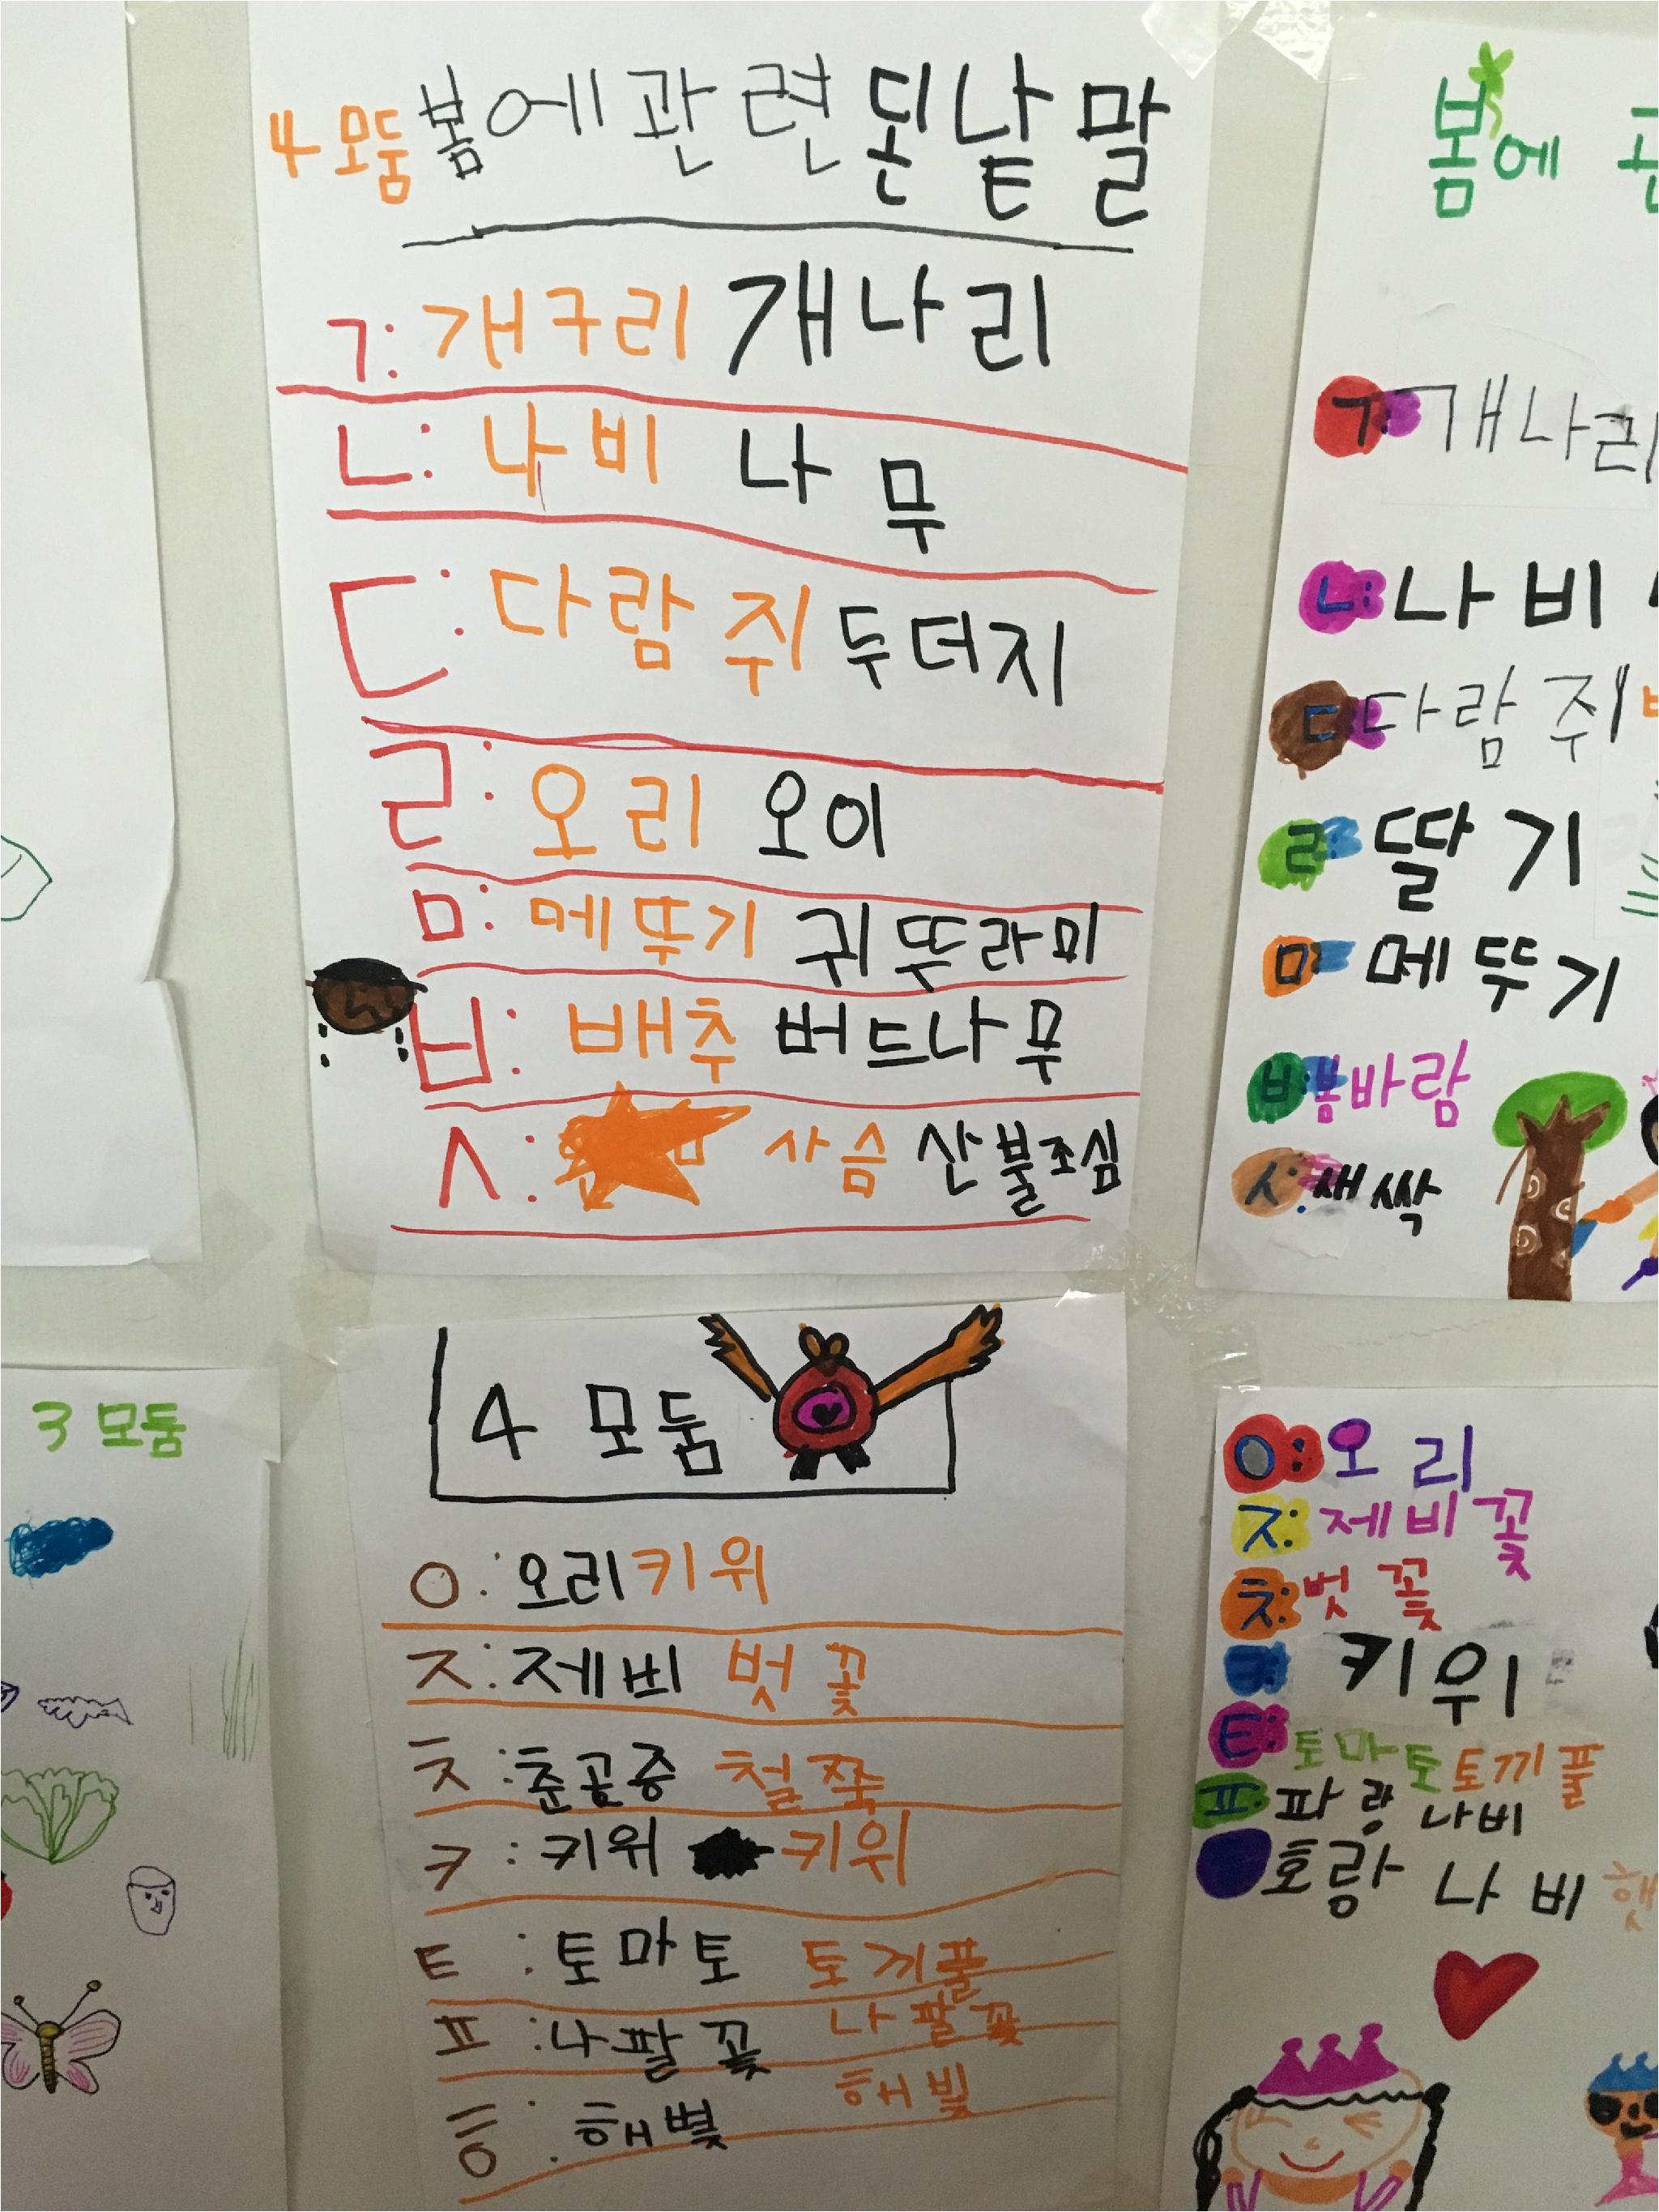 4 모둠 봄에 관련된 낱말
ㄱ: 개구리 개나리
ㄴ: 나비 나무
ㄷ: 다람쥐 두더지
ㄹ: 오리 오이
ㅁ: 메뚜기 귀뚜라미
ㅂ: 배추 버드나무
ㅅ: 사슴 산불조심
봄에
ㄱ: 개나리
ㄴ: 나비
ㄷ: 다람쥐
ㄹ: 딸기
ㅁ: 메뚜기
ㅂ: 봄바람
ㅅ: 새싹
3 모둠
4 모둠
ㅇ: 오리 키위
ㅈ: 제비 벚꽃
ㅊ: 춘곤증 철쭉
ㅋ: 키위 키위
ㅌ: 토마토 토끼풀
ㅍ: 나팔꽃 나팔꽃
ㅎ: 해볓 해빛
ㅇ: 오리
ㅈ: 제비꽃
ㅊ: 벗꽃
ㅋ: 키위
ㅌ: 토마토 토끼풀
ㅍ: 파랑나비
호랑나비